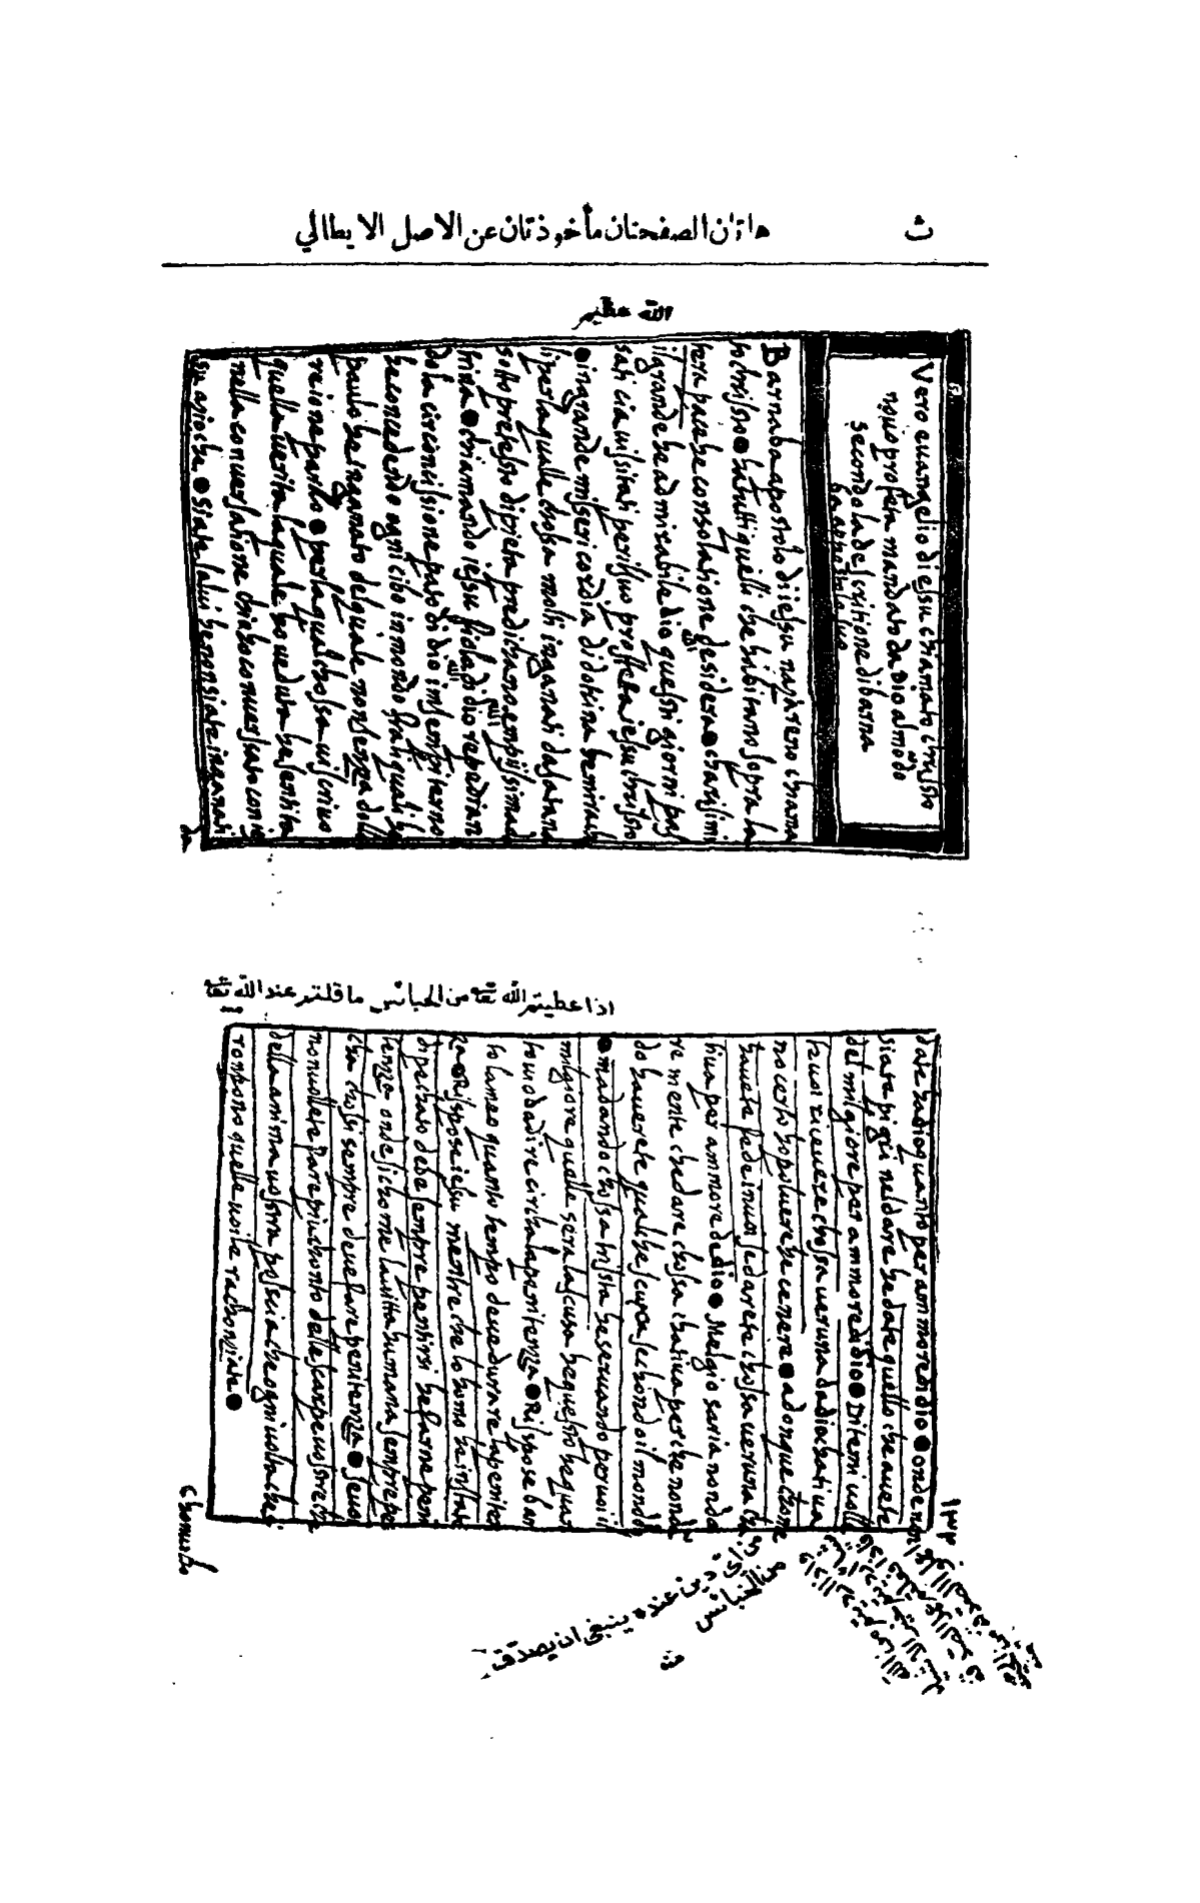 ث
هاتان الصفحتان مأخوذتان عن الاصل الايطالي
الله عظيم
Vero euangelio di iessu chiamato chrissto
nouo profeta mandato da dio al mōdo
secondo la descritione di barna
ba apostolo suo
Barnaba apostolo di iessu nazareno chiama
to chrissto ● ha tutti quelli che habitano sopra la
terra pace he consolatione dessidera ● charissimi
il grande he admirabile dio questi giorni pas
sati ci a uissitati per il suo proffeta iessu chrissto
● in grande misericordia di dotrina he mirachu
li per la qualle chossa molti inganati da satana
sotto pretessto di pieta predichano empijssima d
otrina ● chiamando iessu fiolo di dio repudian
do la circoncissione pato di dio in sempiterno
he concedendo ogni cibo inmondo fra li quali he
paulo he inganato del quale non senza dollo
re io ne parlo ● per la qual chossa ui scriuo
quella uerita la quale ho ueduta he sentita
nella conuersatione chio ho conuersato con ie
ssu aciò che ● siate salui he non siate inganati
da
اذا عطيتم الله تعا من الخبائس ما قلتم عند الله تعا
date ha dio quanto per ammore di dio ● onde non
siate pigri nel dare he date quello che auete
del migiore per ammore di dio ● Ditemi uolle
te uoi riceuere chossa ueruna da dio chatiua
no certo ho poluere he cenere ● adonque chome
hauete fede in uoi se darete chossa ueruna cha
tiua per ammore de dio ● Melgio saria non da
re niente che dare chossa chatiua perche non dā
do hauerete qualche scussa sechondo il mondo
● ma dando chossa trissta he seruando per uoi il
milgiore qualle sera la scussa he quessto he quan
to uio da dire circha la penitenza ● Risspose bar
tolameo quanto tempo deue durare la peniten
za ● Risspose iessu mentre che lo homo he in stato
di pechato debe sempre pentirsi he far ne peni
tenza onde sichome la uitta humana sempre pe
cha chossi sempre deue fare penitenza ● se uoi
non uollete fare piu chonto delle scarpe uosstre che
della anima uosstra possia che ogni uolta che si
ronpono quelle uoi le rachonziate ●
chonuito
١٣٢
اى دين عنده ينبغى ان يصدق
من الخبائس
منه